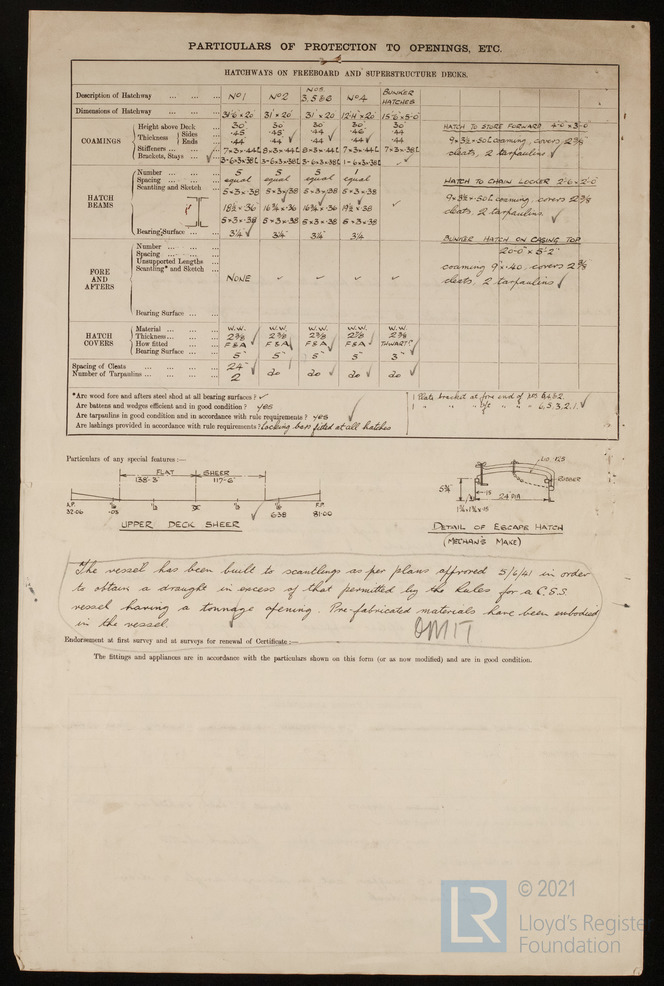 PARTICULARS OF PROTECTION TO OPENINGS, ETC.
HATCHWAYS ON FREEBOARD AND SUPERSTRUCTURE DECKS.
Description of Hatchway ... ... ... No 1 No 2 Nos 3.5&6 No 4 BUNKER HATCHES
Dimensions of Hatchway ... ... ... 31'6 x 20 31' x 20' 31' x 20 12'-11" x 20' 15'6 x 5'-0"
COAMINGS
Height above Deck ... 30" 30 30 30" 30"
Thickness Sides ... .45 .45 .44 .44 .44
Ends ... .44 .44 .44 .44 .44
Stiffeners ... ... ... 7x3x.44L 8x3x.44L 8x3x.44L 7x3x.44L 7x3x.38L
Brackets, Stays ... 3-6x3x38L 3-6x3x38L 3-6x3x38L 1-6x3x38L
HATCH BEAMS
Number ... ... ... 5 5 5 1
Spacing ... ... ... equal equal equal equal
Scantling and Sketch ... 5x3x.38 5x3x.38 5x3x.38 5x3x.38
18½ x .36 16¾ x .36 16¾ x .36 19½ x .36
5x3x.38 5x3x.38 5x3x.38 5x3x.38
Bearing Surface ... ... 3¼ 3¼" 3¼" 3¼
FORE AND AFTERS
Number ... ... ...
Spacing ... ... ...
Unsupported Lengths ...
Scantling* and Sketch ... NONE
Bearing Surface ... ...
HATCH COVERS
Material ... ... ... W.W. W.W. W.W. W.W. W.W.
Thickness... ... ... 2 3/8 2 3/8 2 3/8 2 3/8 2 3/8
How fitted ... ... F & A F & A F & A F & A THWARTS
Bearing Surface ... ... 5" 5" 5" 5" 3"
Spacing of Cleats ... ... ... ... 24"
Number of Tarpaulins ... ... ... ... 2 do do do do
HATCH TO STORE FORWARD 4'-0 x 3'-0
9 x 3½ x .50L coaming, covers 2 3/8
cleats, 2 tarpaulins
HATCH TO CHAIN LOCKER 2'-6 x 2'-0
9 x 3½ x .50L coaming, covers 2 3/8
cleats, 2 tarpaulins.
BUNKER HATCH ON CASING TOP
20'-0" x 5'-2"
coaming 9" x .40, covers 2 3/8
cleats, 2 tarpaulins
*Are wood fore and afters steel shod at all bearing surfaces?
Are battens and wedges efficient and in good condition? yes
Are tarpaulins in good condition and in accordance with rule requirements? yes
Are lashings provided in accordance with rule requirements? Locking bars fitted at all hatches
1 Plate bracket at fore end of Nos 6 & 2
1 " " " aft " " " 6, 5, 3, 2, 1.
Particulars of any special features:—
FLAT SHEER
138'-3" 117'-6"
A.P. F.P.
32.06 .03 6.38 81.00
UPPER DECK SHEER
RUBBER
5¾"
24 DIA
DETAIL OF ESCAPE HATCH
(MECHAN'S MAKE)
The vessel has been built to scantlings as per plans approved 5/6/41 in order
to obtain a draught in excess of that permitted by the Rules for a C.S.S.
vessel having a tonnage opening. Pre-fabricated materials have been embodied
in the vessel
OMIT
Endorsement at first survey and at surveys for renewal of Certificate:—
The fittings and appliances are in accordance with the particulars shown on this form (or as now modified) and are in good condition.
LR
© 2021
Lloyd's Register
Foundation